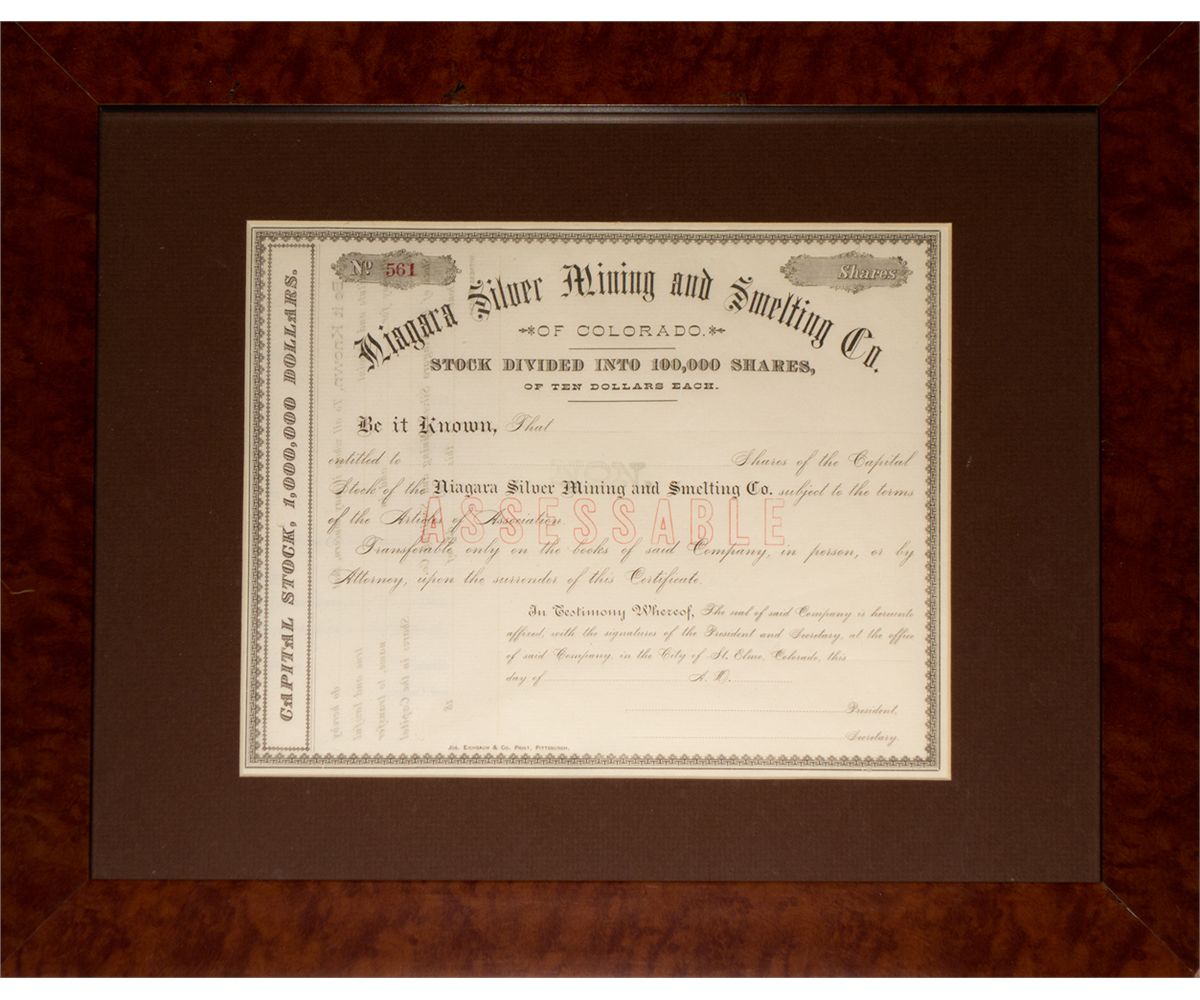 CAPITAL STOCK, 1,000,000 DOLLARS.
No 561
Shares
Niagara Silver Mining and Smelting Co.
OF COLORADO.
STOCK DIVIDED INTO 100,000 SHARES,
OF TEN DOLLARS EACH.
Be it Known, That
entitled to Shares of the Capital
Stock of the Niagara Silver Mining and Smelting Co. subject to the terms
of the Articles of Association.
ASSESSABLE
Transferable only on the books of said Company, in person, or by
Attorney, upon the surrender of this Certificate.
In Testimony Whereof, The seal of said Company is hereunto
affixed, with the signatures of the President and Secretary, at the office
of said Company, in the City of St. Elmo, Colorado, this
day of A. D.
President.
Secretary.
Jos. Eichbaum & Co. Print, Pittsburgh.